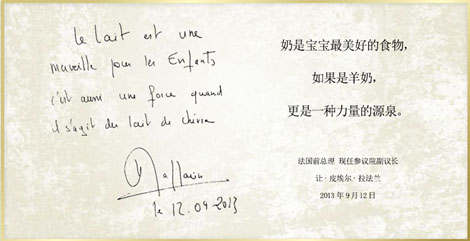 Le lait est une
merveille pour les Enfants
c'est aussi une force quand
il s'agit du lait de chèvre
Raffarin
le 12.09.2013
奶是宝宝最美好的食物，
如果是羊奶，
更是一种力量的源泉。
法国前总理 现任参议院副议长
让·皮埃尔·拉法兰
2013 年 9 月 12 日